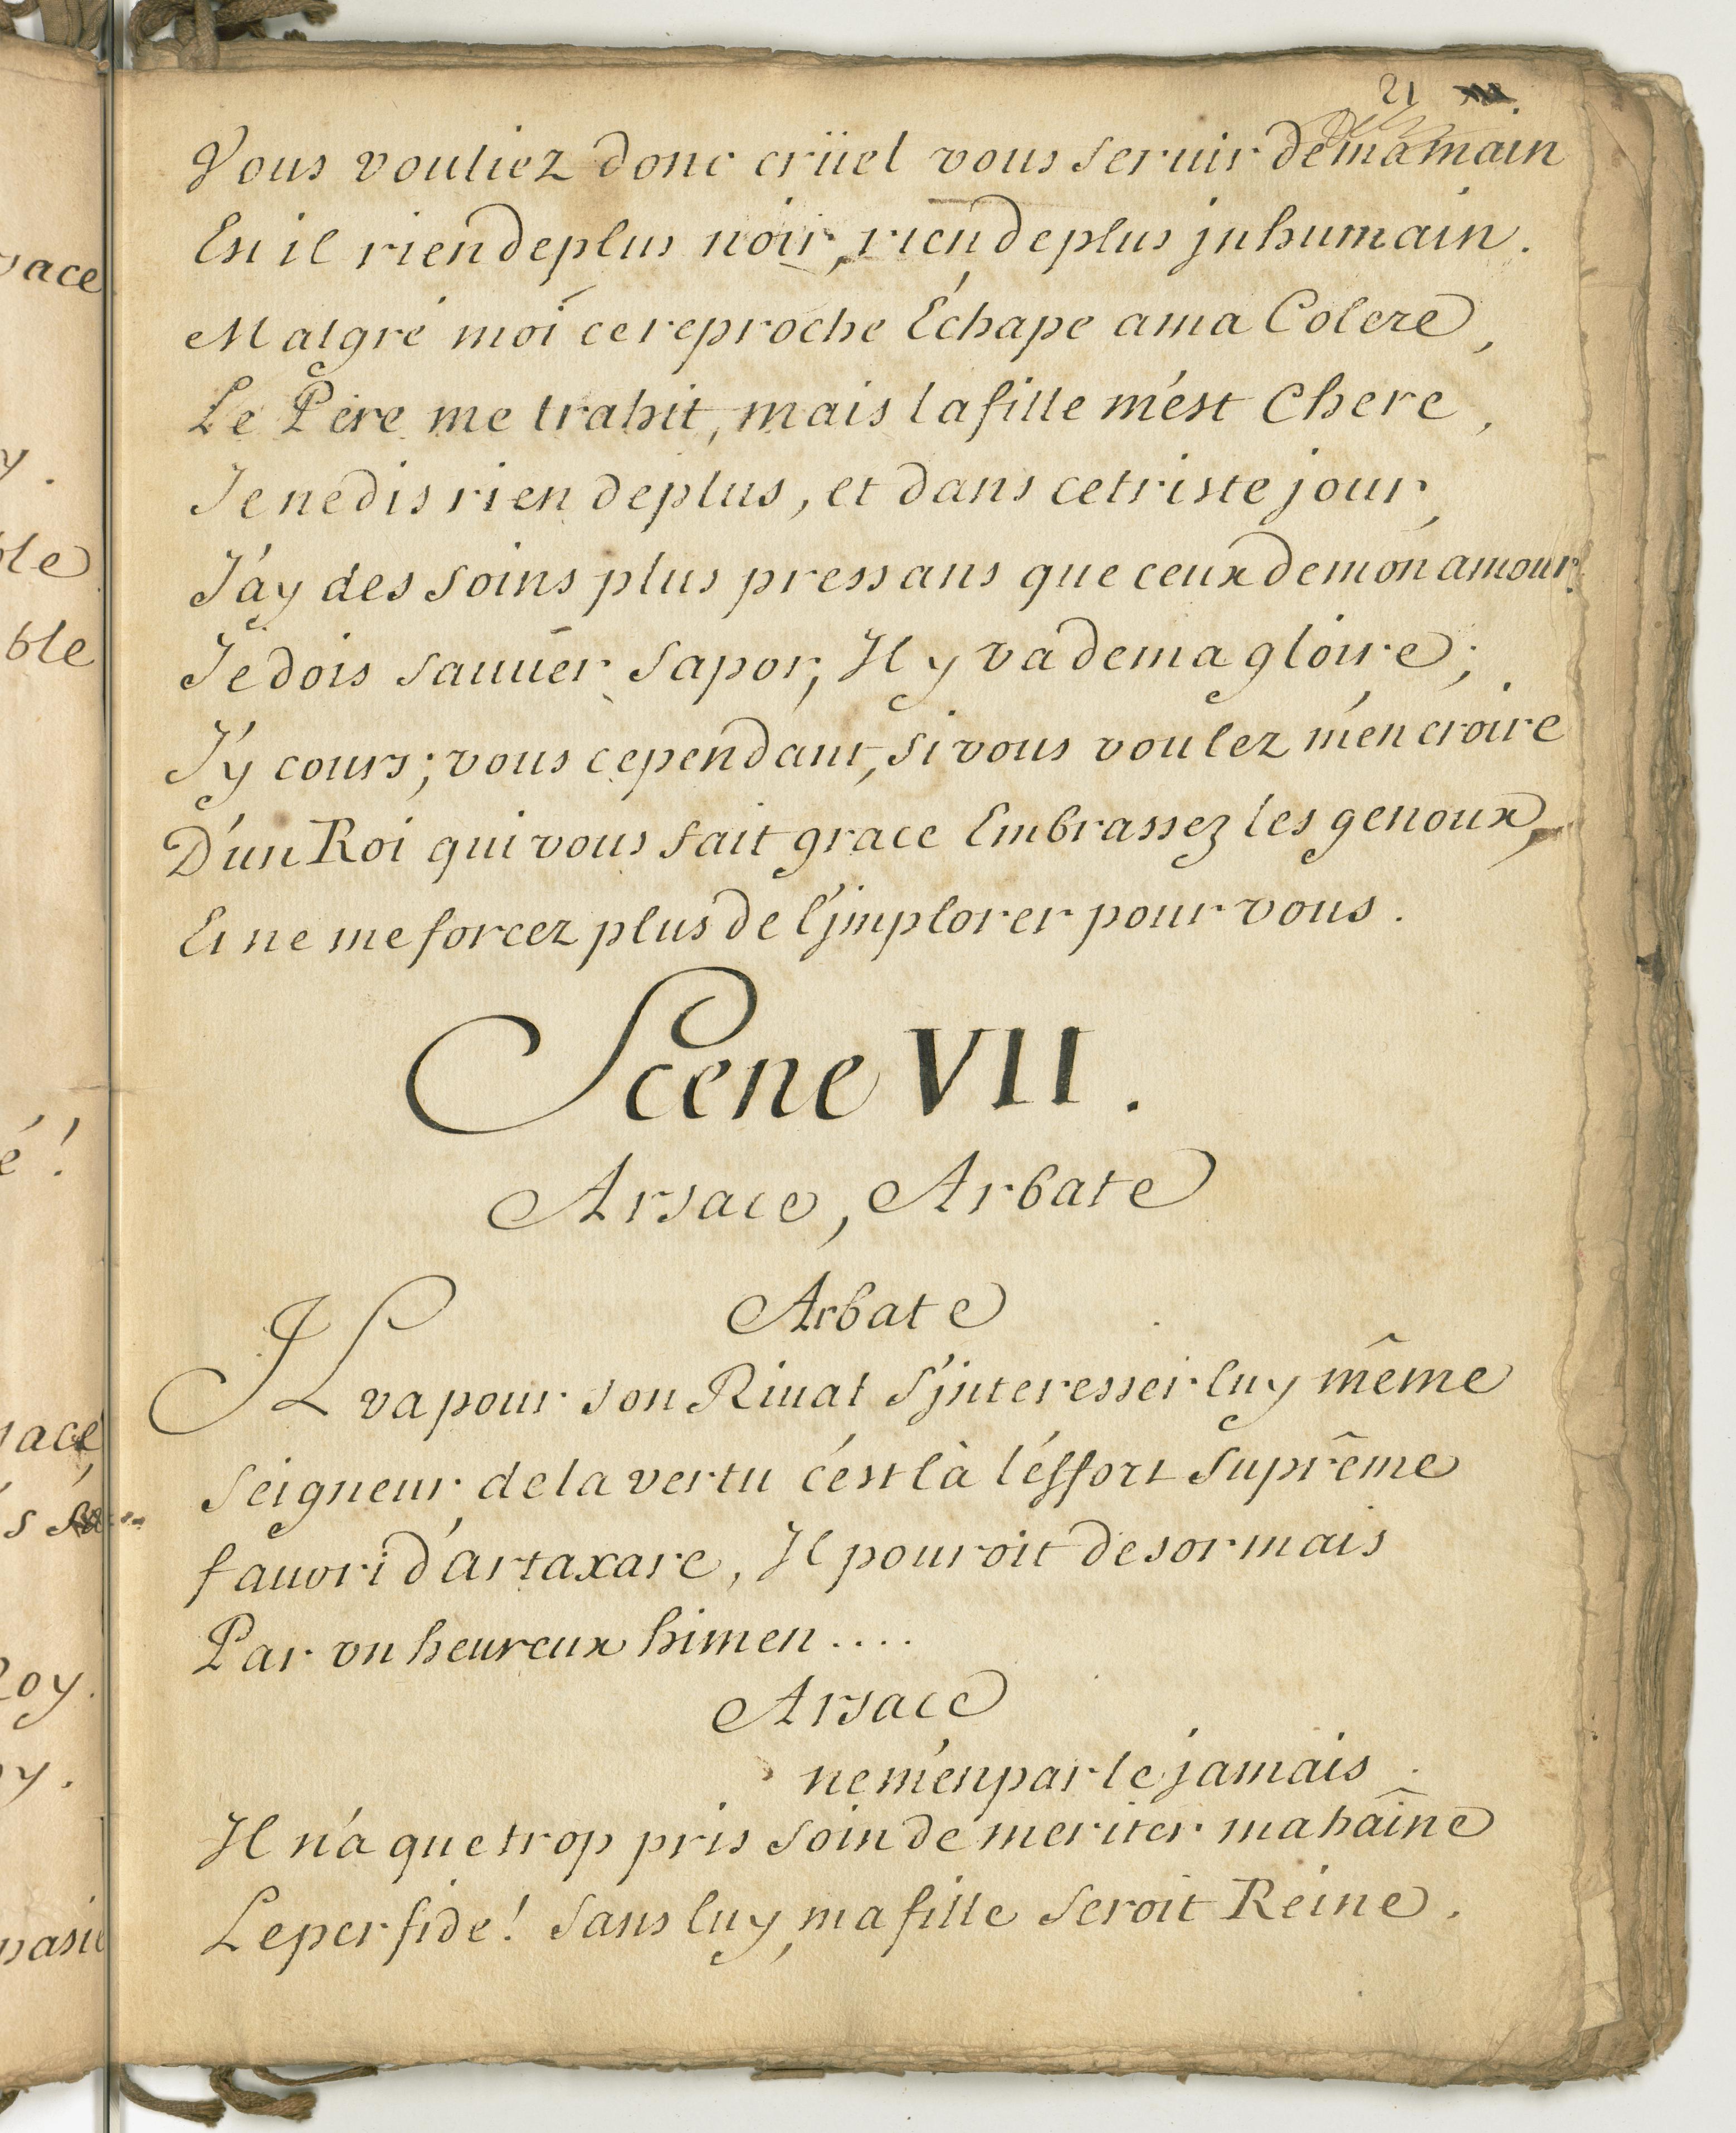 21
Vous vouliez donc crüel vous seruir de ma main
Est il rien de plus noir, rien de plus jnhumain.
Malgré moi ce reproche Échape a ma Colere,
Le Pére me trahit, mais la fille m'ést Chere,
Je ne dis rien de plus, et dans ce triste jour,
J'ay des soins plus pressans que ceux de mon amour.
Je dois sauuer Sapor, Il y va de ma gloire;
J'y cours; vous cependant, si vous voulez m'en croire
D'un Roi qui vous fait grace Embrassez les genoux,
Et ne me forcez plus de l'jmplorer pour vous.
Scene VII.
Arsace, Arbate
Arbate
IL va pour son Riual s'jnteresser luy même
Seigneur de la vertu c'est là l'éffort Suprême
fauori d'artaxare, Il pouroit desormais
Par vn heureux himen....
Arsace
ne m'en parle jamais.
Il n'a que trop pris soin de meriter ma haîne
Le perfide! Sans luy, ma fille Seroit Reine.
ace
y.
ble
é!
ace
s
Roy.
y.